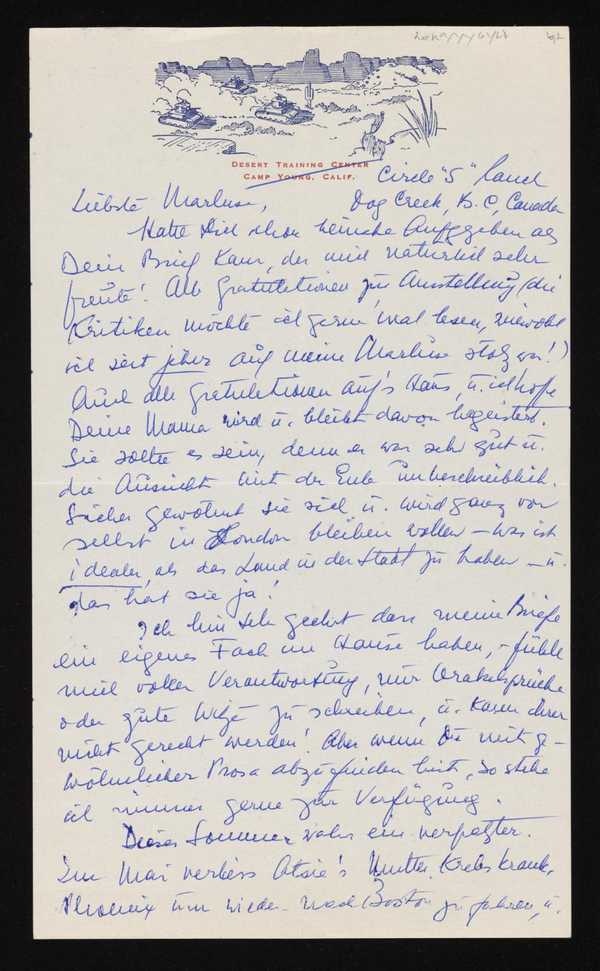 DESERT TRAINING CENTER
CAMP YOUNG, CALIF.
Circle "S" Ranch
Dog Creek, B.C, Canada
Liebste Marluse,
Hatte Dich schon beinahe aufgegeben als
Dein Brief kam, der mich natürlich sehr
freute! Alle Gratulationen zur Ausstellung (die
Kritiken möchte ich gerne mal lesen, wiewohl
ich seit jeher auf meine Marluse stolz war!)
Auch alle Gratulationen auf's Haus, u. ich hoffe
Deine Mama wird u. bleibt davon begeistert.
Sie sollte es sein, denn er war sehr gut u.
die Aussicht mit der Eule unbeschreiblich.
Sicher gewöhnt sie sich u. wird ganz von
selbst in London bleiben wollen – was ist
idealer, als das Land in der Stadt zu haben – u.
das hat sie ja!
Ich bin sehr geehrt dass meine Briefe
ein eigenes Fach im Hause haben, – fühle
mich voller Verantwortung, nur Orakelsprüche
oder gute Witze zu schreiben, u. kann dem
nicht gerecht werden! Aber wenn Du mit ge-
wöhnlicher Prosa abzufinden bist, so stehe
ich immer gerne zur Verfügung.
Dieser Sommer war ein verpatzter.
Im Mai verliess Mutter, Krebskrank,
Phoenix um wieder nach Boston zu fahren, u.